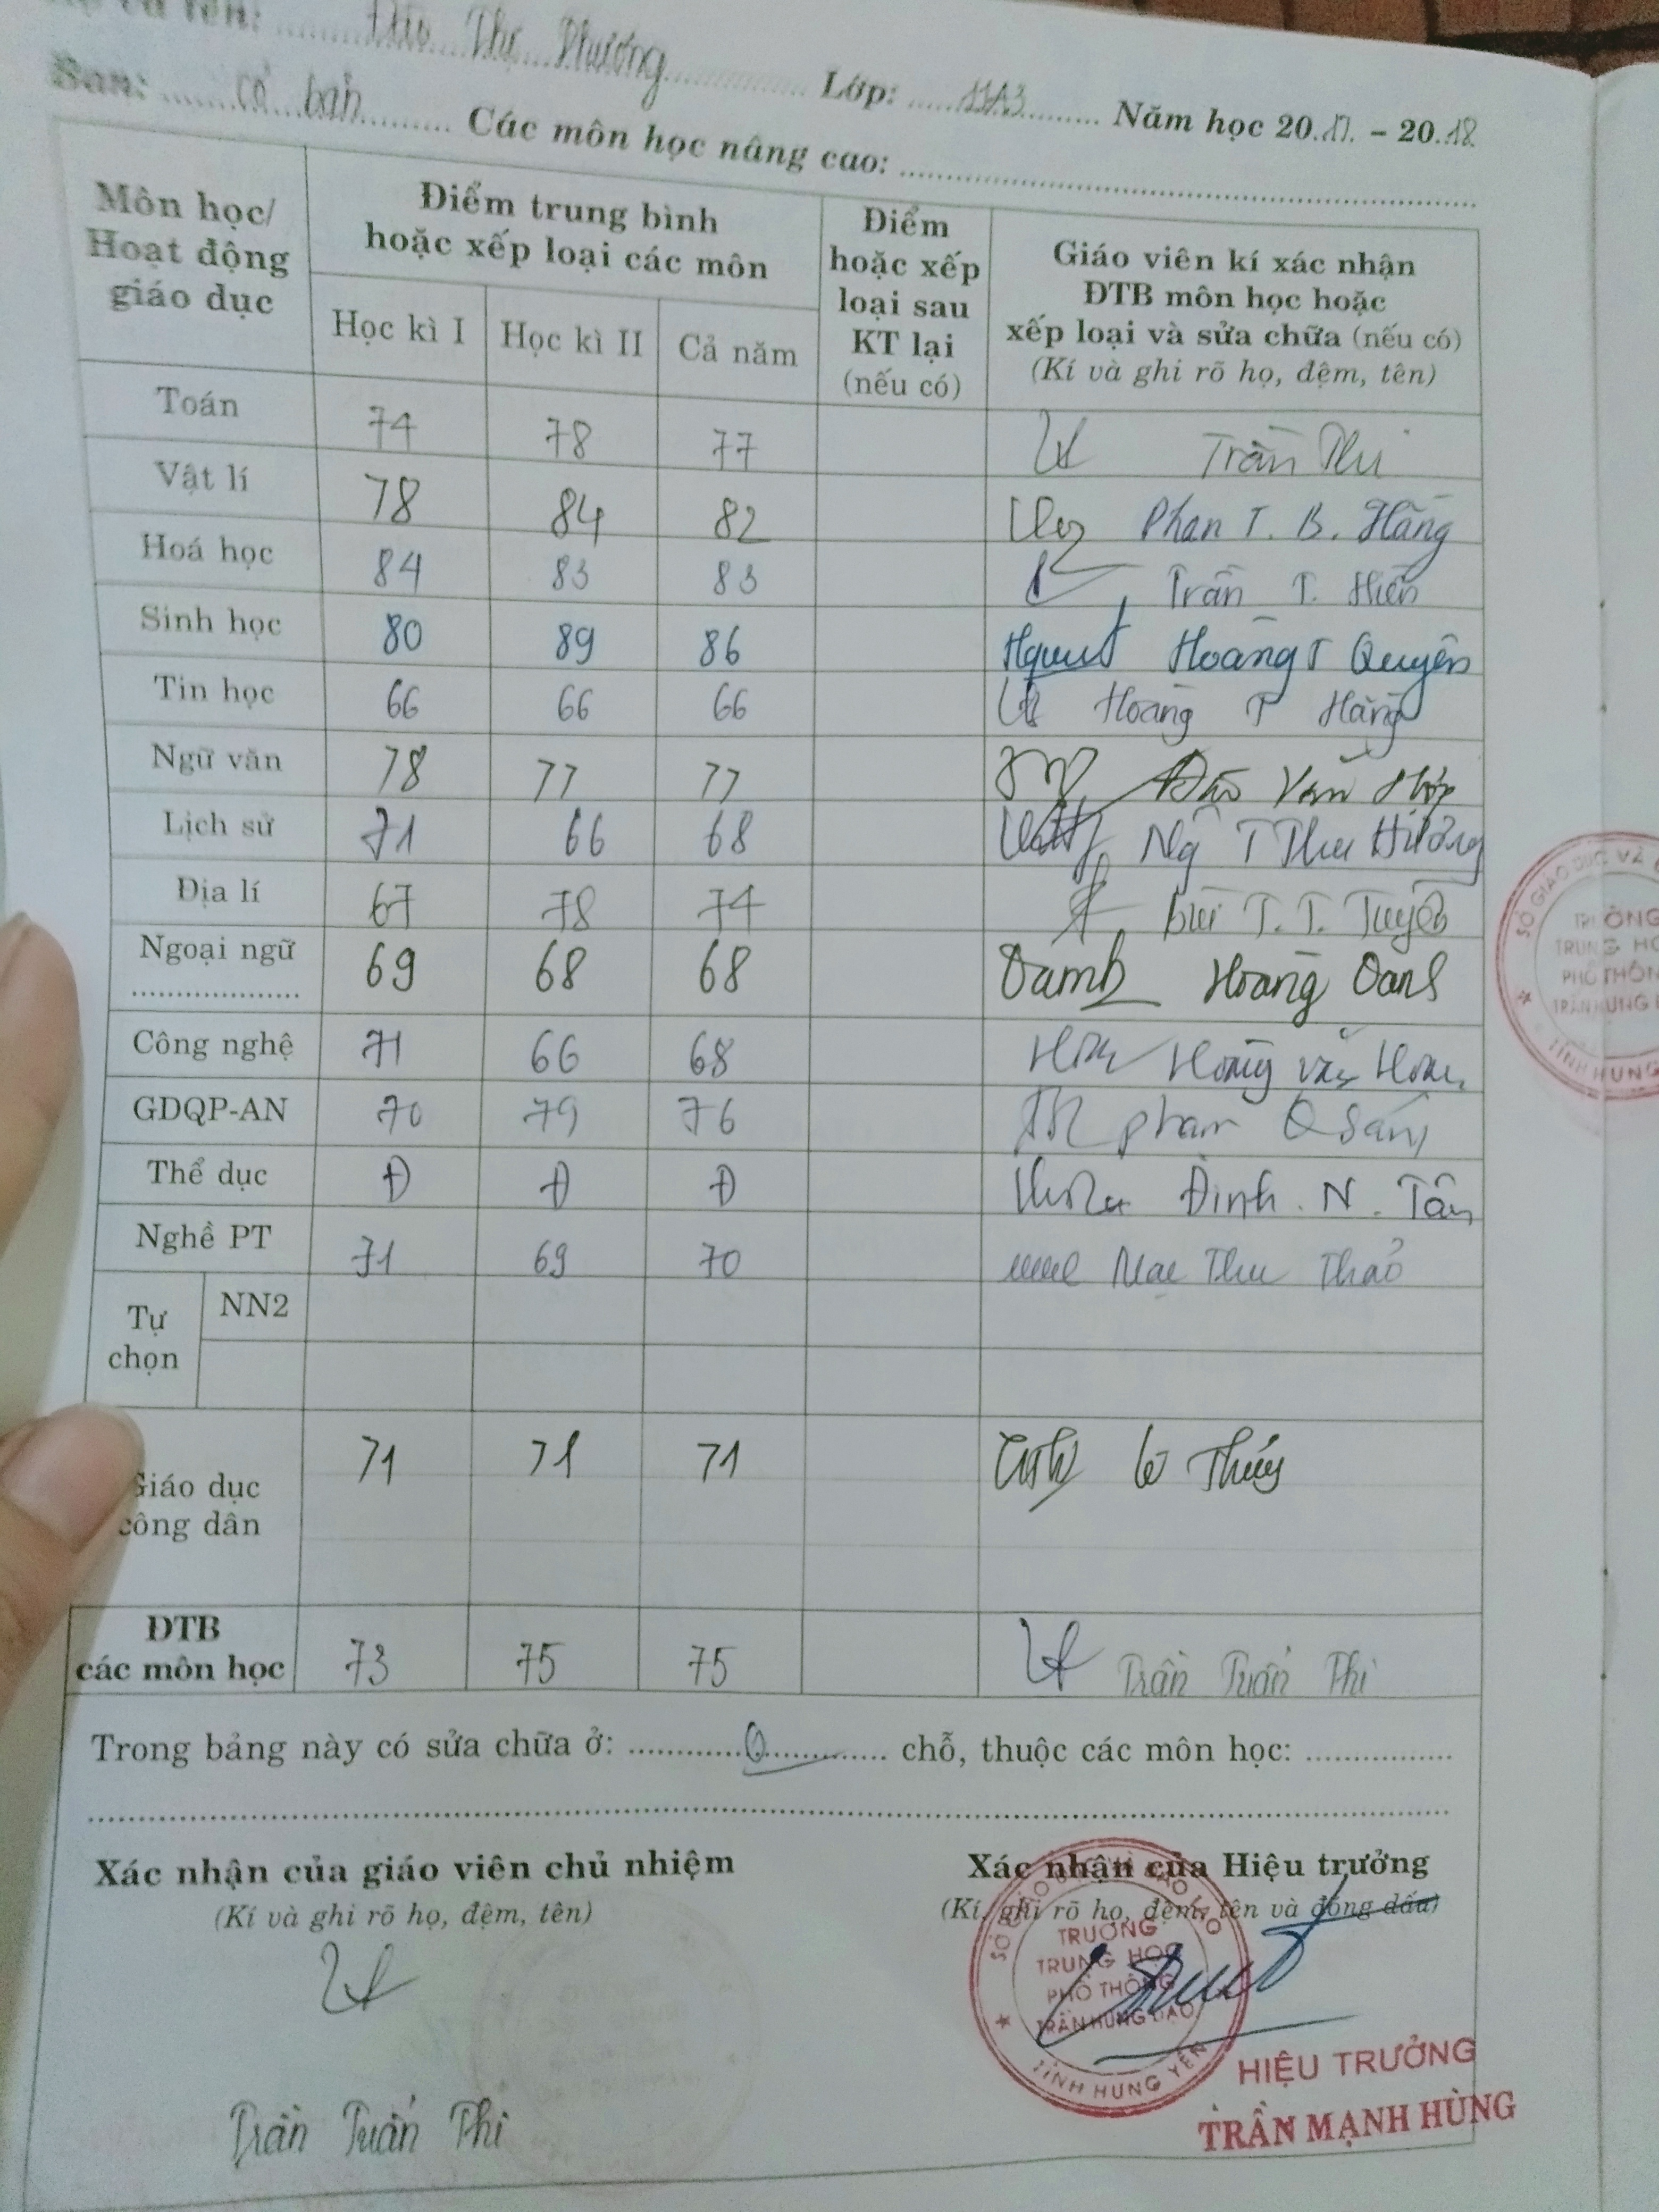 tên: Thị Phương Lớp: 11A3 Năm học 20.17. - 20.18
Ban: cơ bản Các môn học nâng cao:
Môn học/ Hoạt động giáo dục
Điểm trung bình hoặc xếp loại các môn
Điểm hoặc xếp loại sau KT lại (nếu có)
Giáo viên kí xác nhận ĐTB môn học hoặc xếp loại và sửa chữa (nếu có) (Kí và ghi rõ họ, đệm, tên)
Học kì I Học kì II Cả năm
Toán 74 78 77 Trần Phi
Vật lí 78 84 82 Phan T. B. Hằng
Hoá học 84 83 83 Trần T. Hiền
Sinh học 80 89 86 Hoàng T Quyên
Tin học 66 66 66 Hoàng T Hằng
Ngữ văn 78 77 77 Đào Văn Hợp
Lịch sử 71 66 68 Ng T Thu Hường
Địa lí 67 78 74 Bùi T. T. Tuyến
Ngoại ngữ 69 68 68 Hoàng Oanh
Công nghệ 71 66 68 Hoàng Văn
GDQP-AN 70 79 76 Phạm Q Sáng
Thể dục Đ Đ Đ Đinh. N. Tân
Nghề PT 71 69 70 Mạc Thu Thảo
Tự chọn NN2
Giáo dục công dân 71 71 71 Thúy
ĐTB các môn học 73 75 75 Trần Tuấn Phi
Trong bảng này có sửa chữa ở: 0 chỗ, thuộc các môn học:
Xác nhận của giáo viên chủ nhiệm
(Kí và ghi rõ họ, đệm, tên)
Trần Tuấn Phi
Xác nhận của Hiệu trưởng
(Kí, ghi rõ họ, đệm, tên và đóng dấu)
TRƯỜNG
TRUNG HỌC
PHỔ THÔNG
TRẦN HƯNG ĐẠO
TỈNH HƯNG YÊN
HIỆU TRƯỞNG
TRẦN MẠNH HÙNG
SỞ GIÁO DỤC VÀ
TRƯỜNG
TRUNG HỌ
PHỔ THÔN
TRẦN HƯNG
TỈNH HƯNG